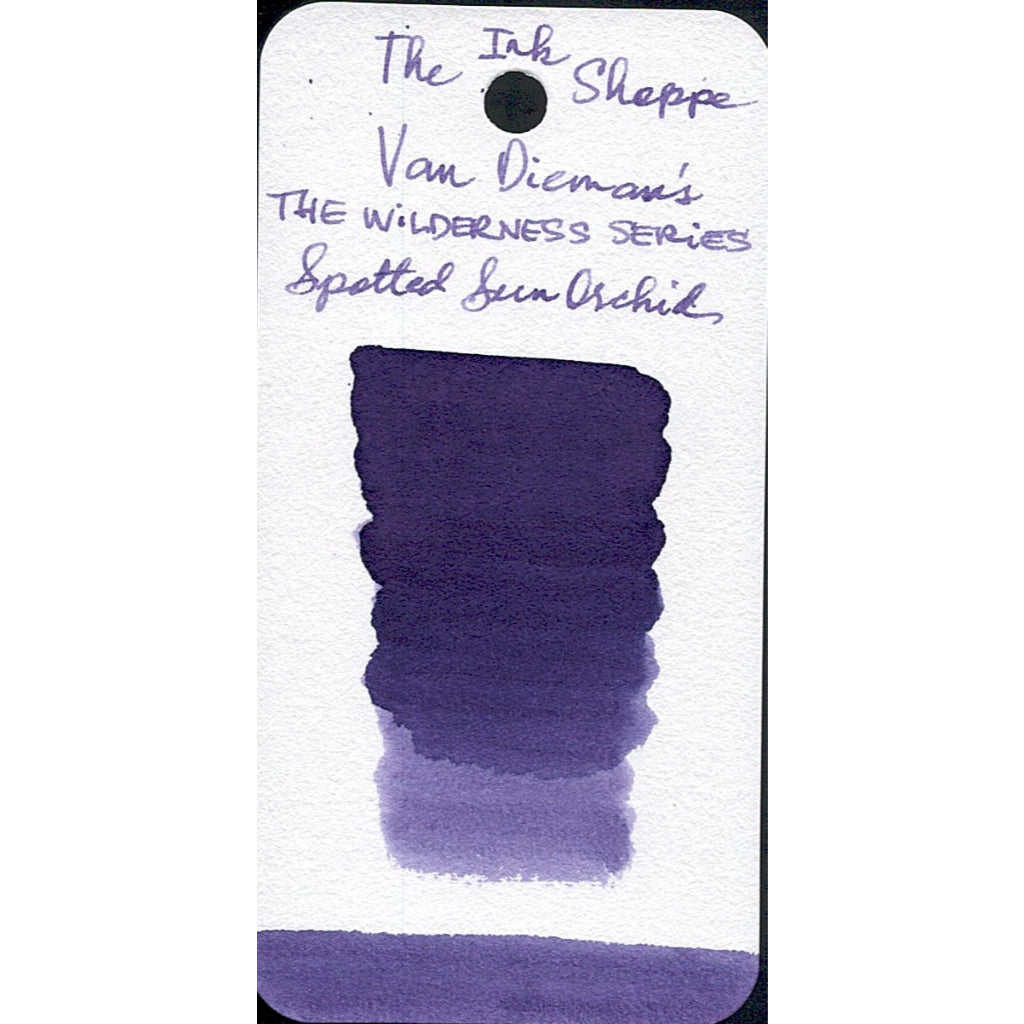 The Ink Shoppe
Van Dieman's
THE WiLDERNESS SERiES
Spotted Sun Orchid